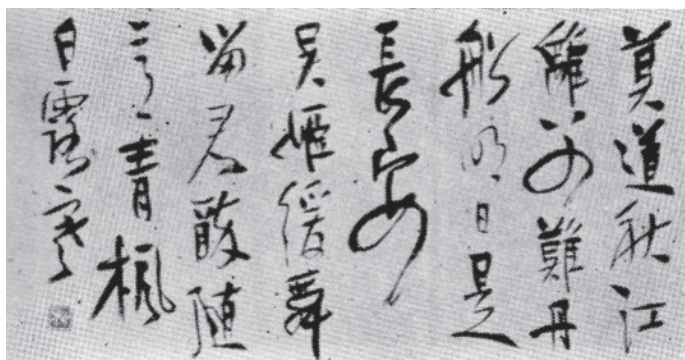 莫道秋江
離別難舟
船明日是
長安
吳姬緩舞
留君醉隨
意青楓
白露寒